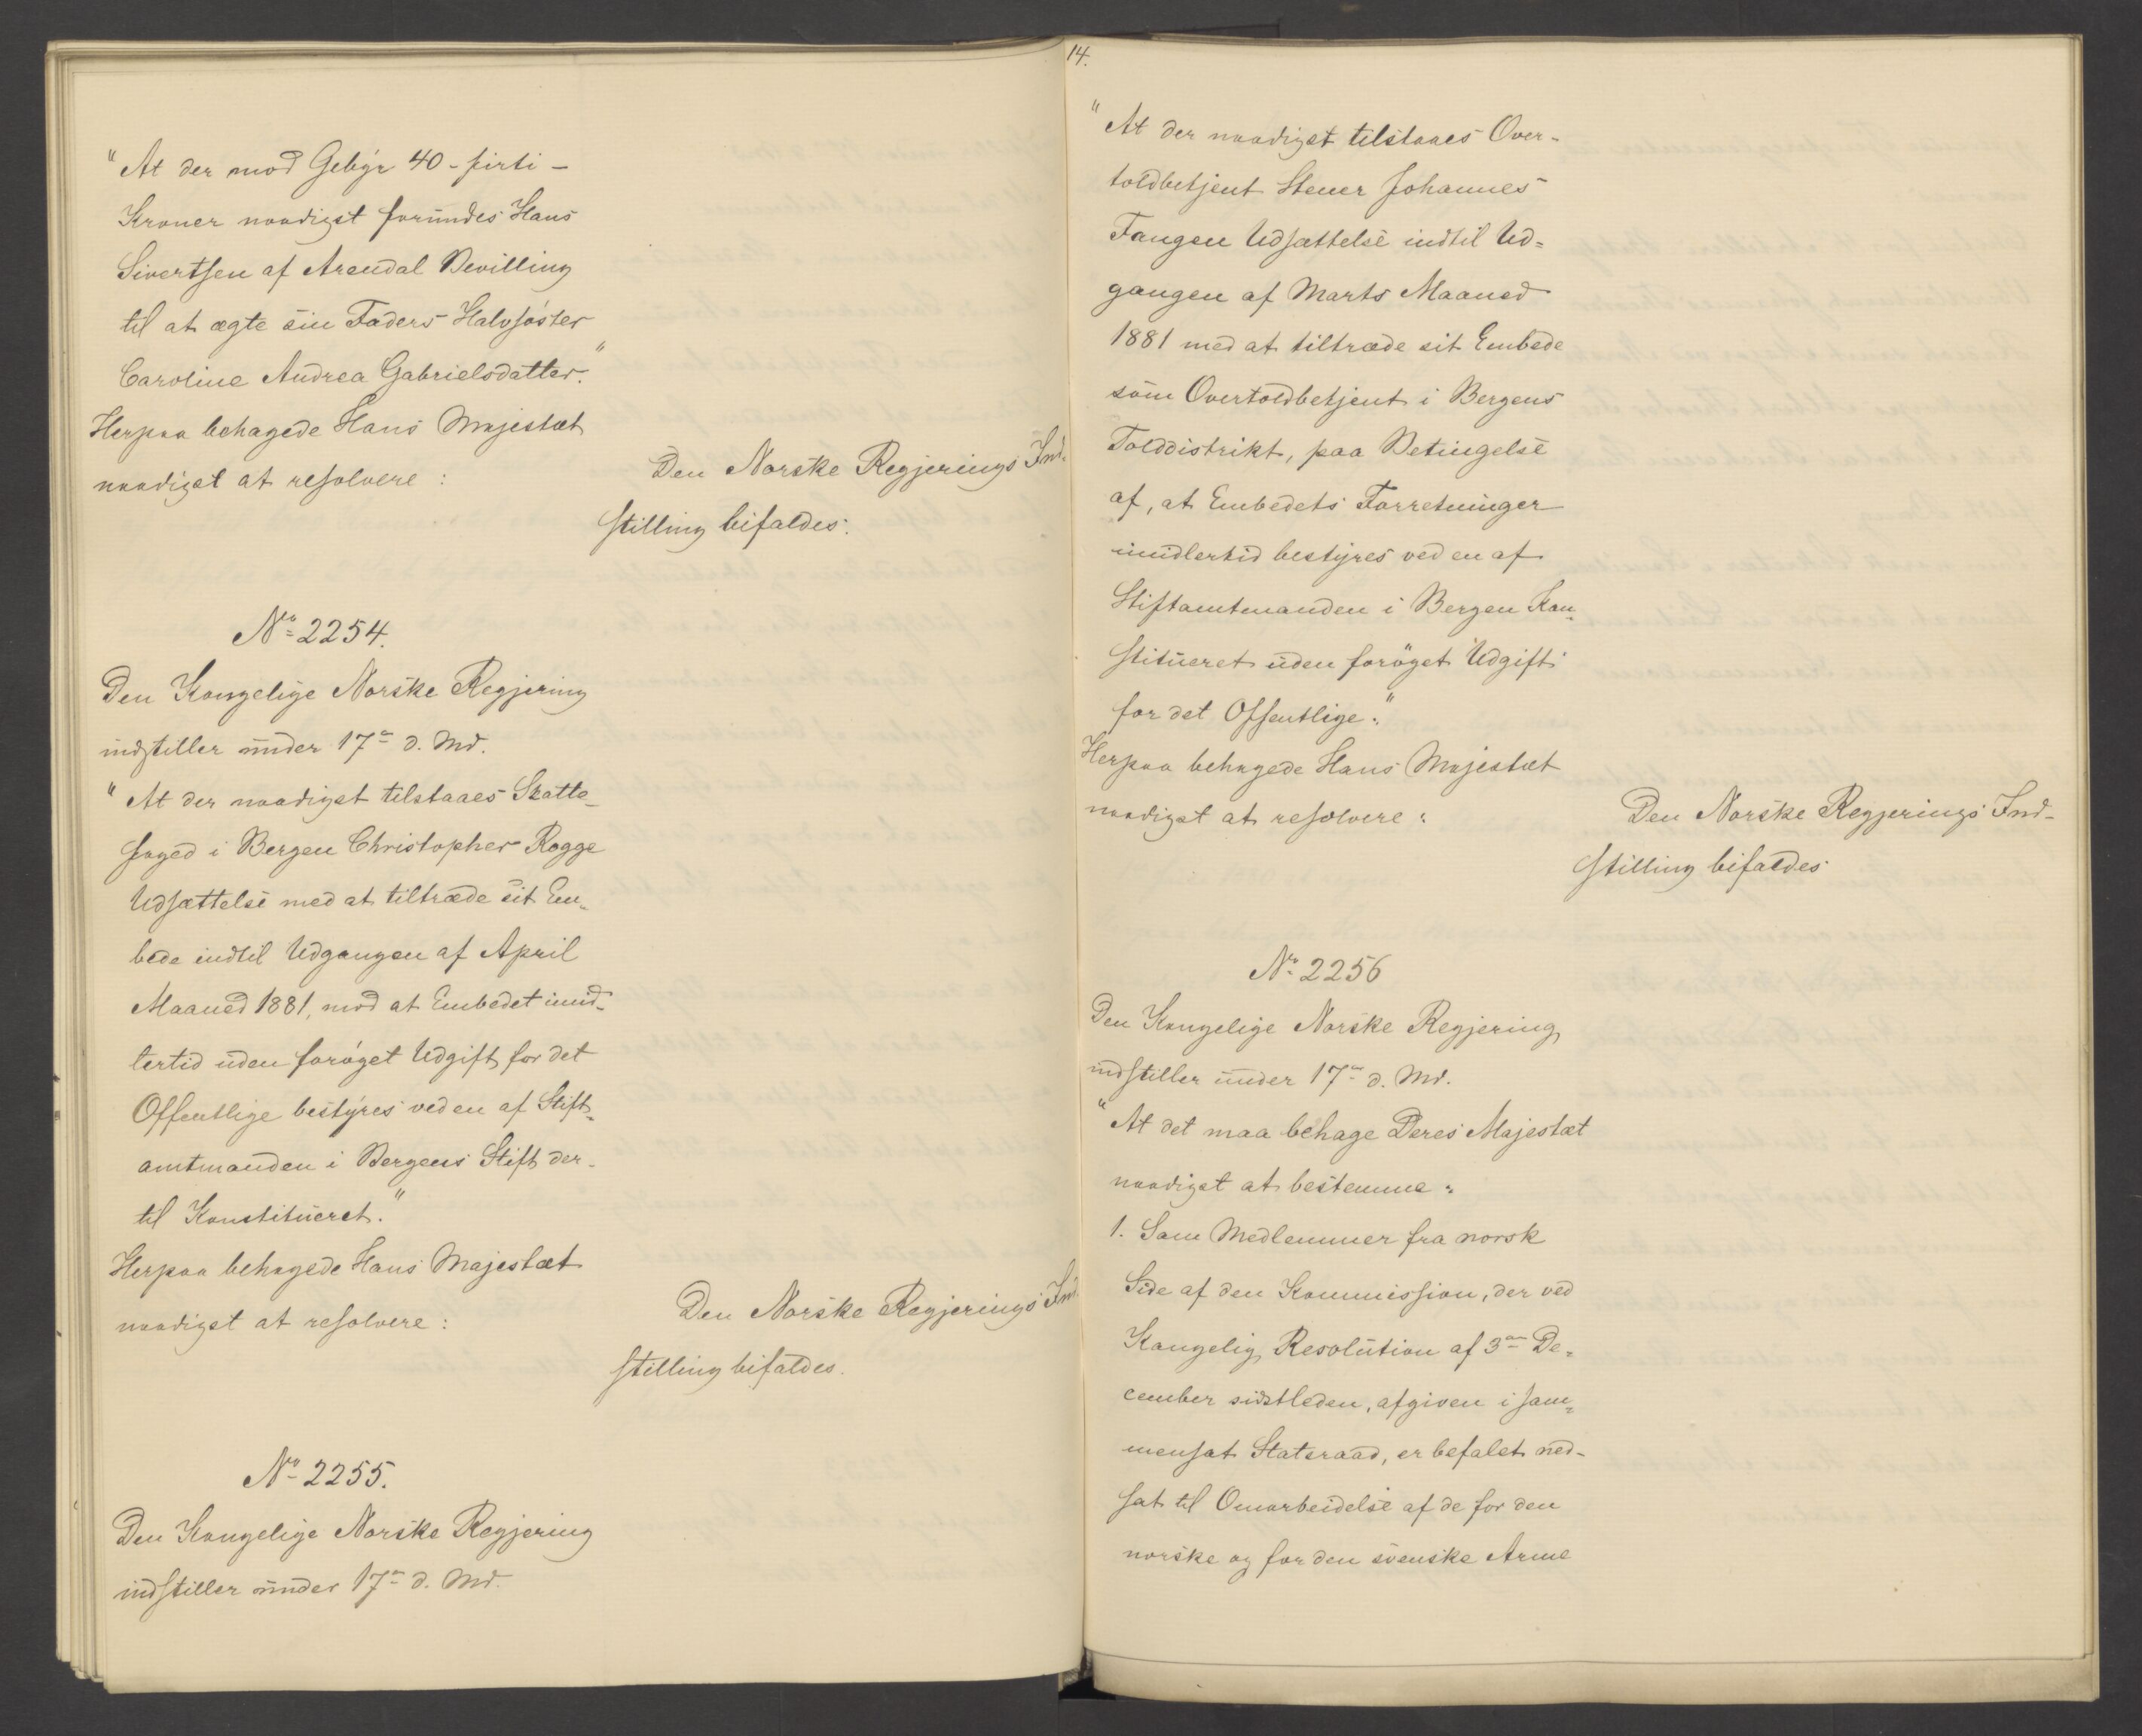 "At der mod Gebyr 40 - firti -
Kroner naadigst forundes Hans
Sivertsen af Arendal Bevilling
til at ægte sin Faders Halvsøster
Caroline Andrea Gabrielsdatter."
Herpaa behagede Hans Majestæt
naadigst at resolvere :
Den Norske Regjerings Ind-
stilling bifaldes.
No. 2254.
Den Kongelige Norske Regjering
indstiller under 17de d. Md.
"At der naadigst tilstaaes Skatte-
foged i Bergen Christopher Rogge
Udsættelse med at tiltræde sit Em-
bede indtil Udgangen af April
Maaned 1881, mod at Embedet imid-
lertid uden forøget Udgift for det
Offentlige bestyres ved en af Stift-
amtmanden i Bergens Stift der-
til Konstitueret."
Herpaa behagede Hans Majestæt
naadigst at resolvere :
Den Norske Regjerings Ind-
stilling bifaldes.
No. 2255.
Den Kongelige Norske Regjering
indstiller under 17de d. Md.
14.
"At der naadigst tilstaaes Over-
toldbetjent Stener Johannes
Fangen Udsættelse indtil Ud-
gangen af Marts Maaned
1881 med at tiltræde sit Embede
som Overtoldbetjent i Bergens
Tolddistrikt, paa Betingelse
af, at Embedets Forretninger
imidlertid bestyres ved en af
Stiftamtmanden i Bergen Kon-
stitueret uden forøget Udgift
for det Offentlige."
Herpaa behagede Hans Majestæt
naadigst at resolvere :
Den Norske Regjerings Ind-
stilling bifaldes
No. 2256
Den Kongelige Norske Regjering
indstiller under 17de d. Md.
"At det maa behage Deres Majestæt
naadigst at bestemme :
1. Som Medlemmer fra norsk
Side af den Kommission, der ved
Kongelig Resolution af 3die De-
cember sidstleden, afgiven i sam-
mensat Statsraad, er befalet ned-
sat til Omarbeidelse af de for den
norske og for den svenske Arme